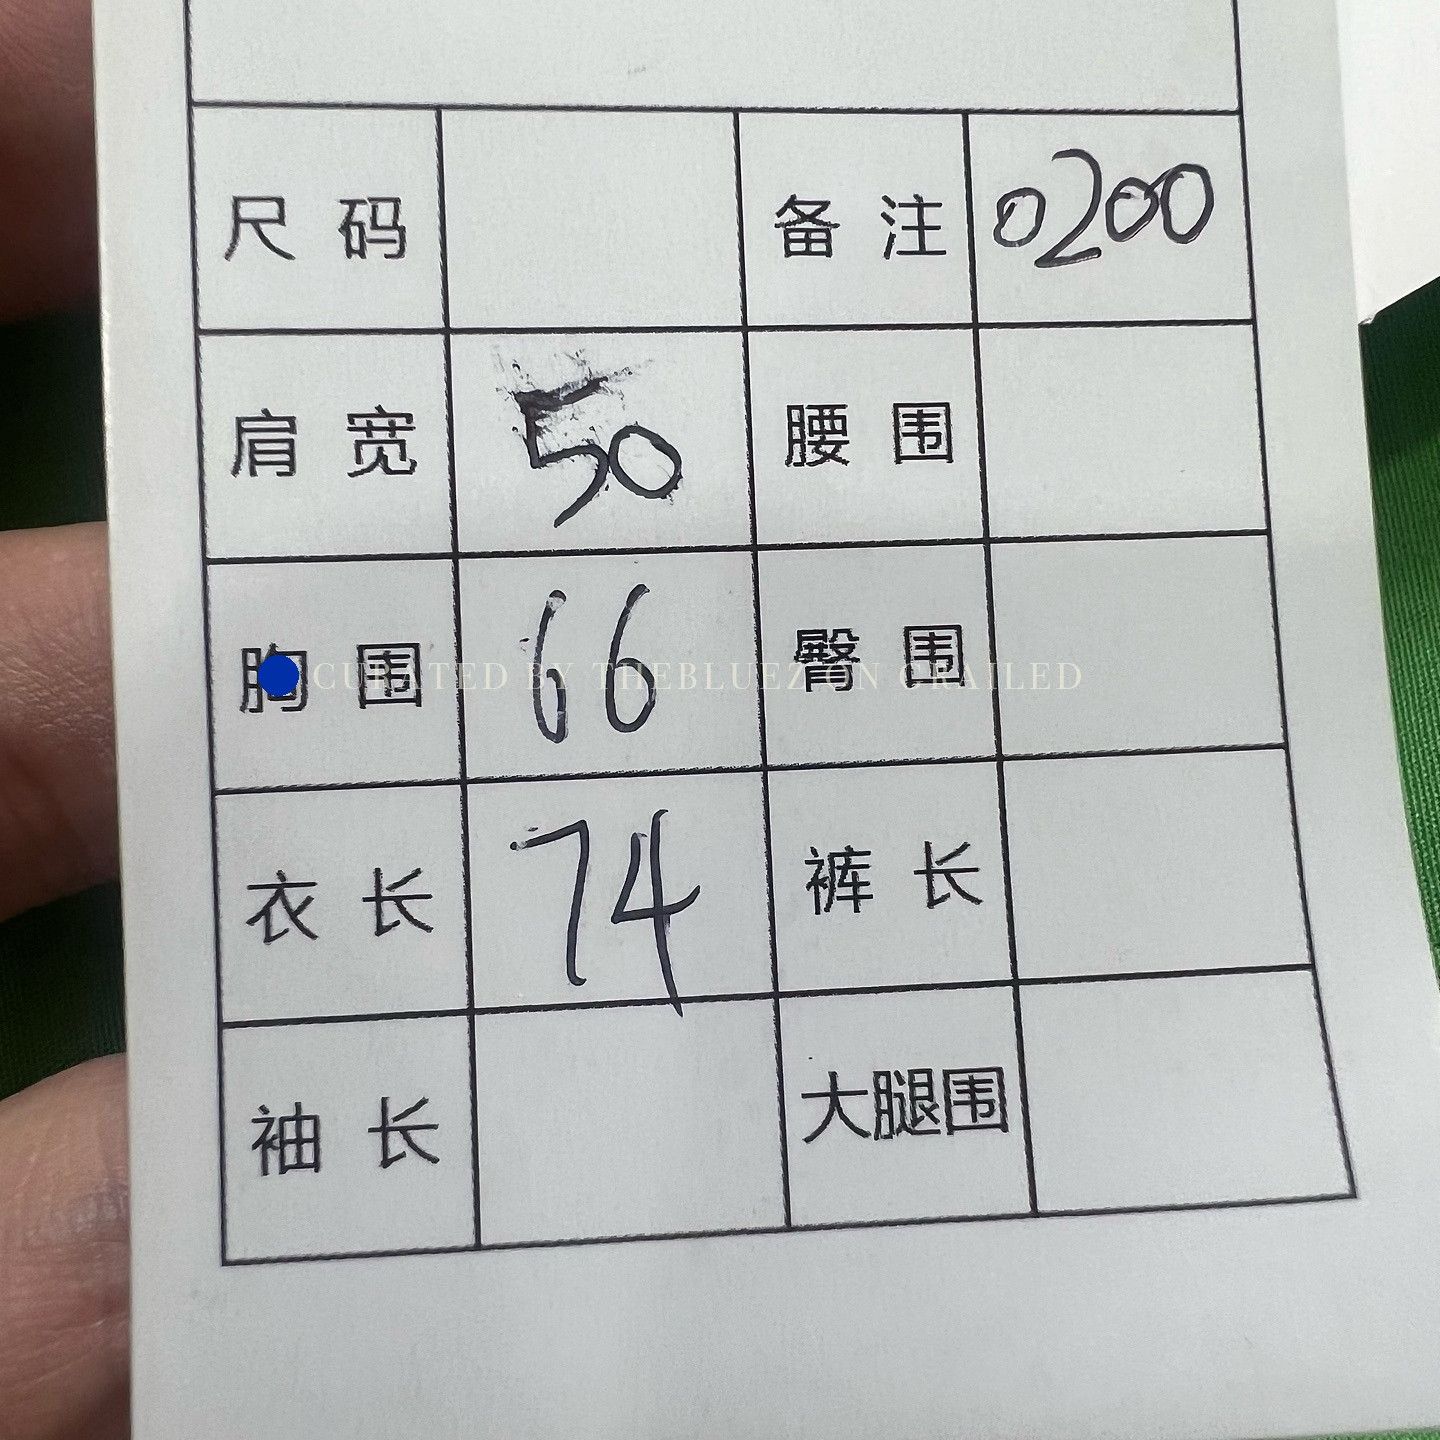 尺码 备注 0200
肩宽 50 腰围
胸围 66 臀围
CURATED BY THEBLUEZ ON GRAILED
衣长 74 裤长
袖长 大腿围